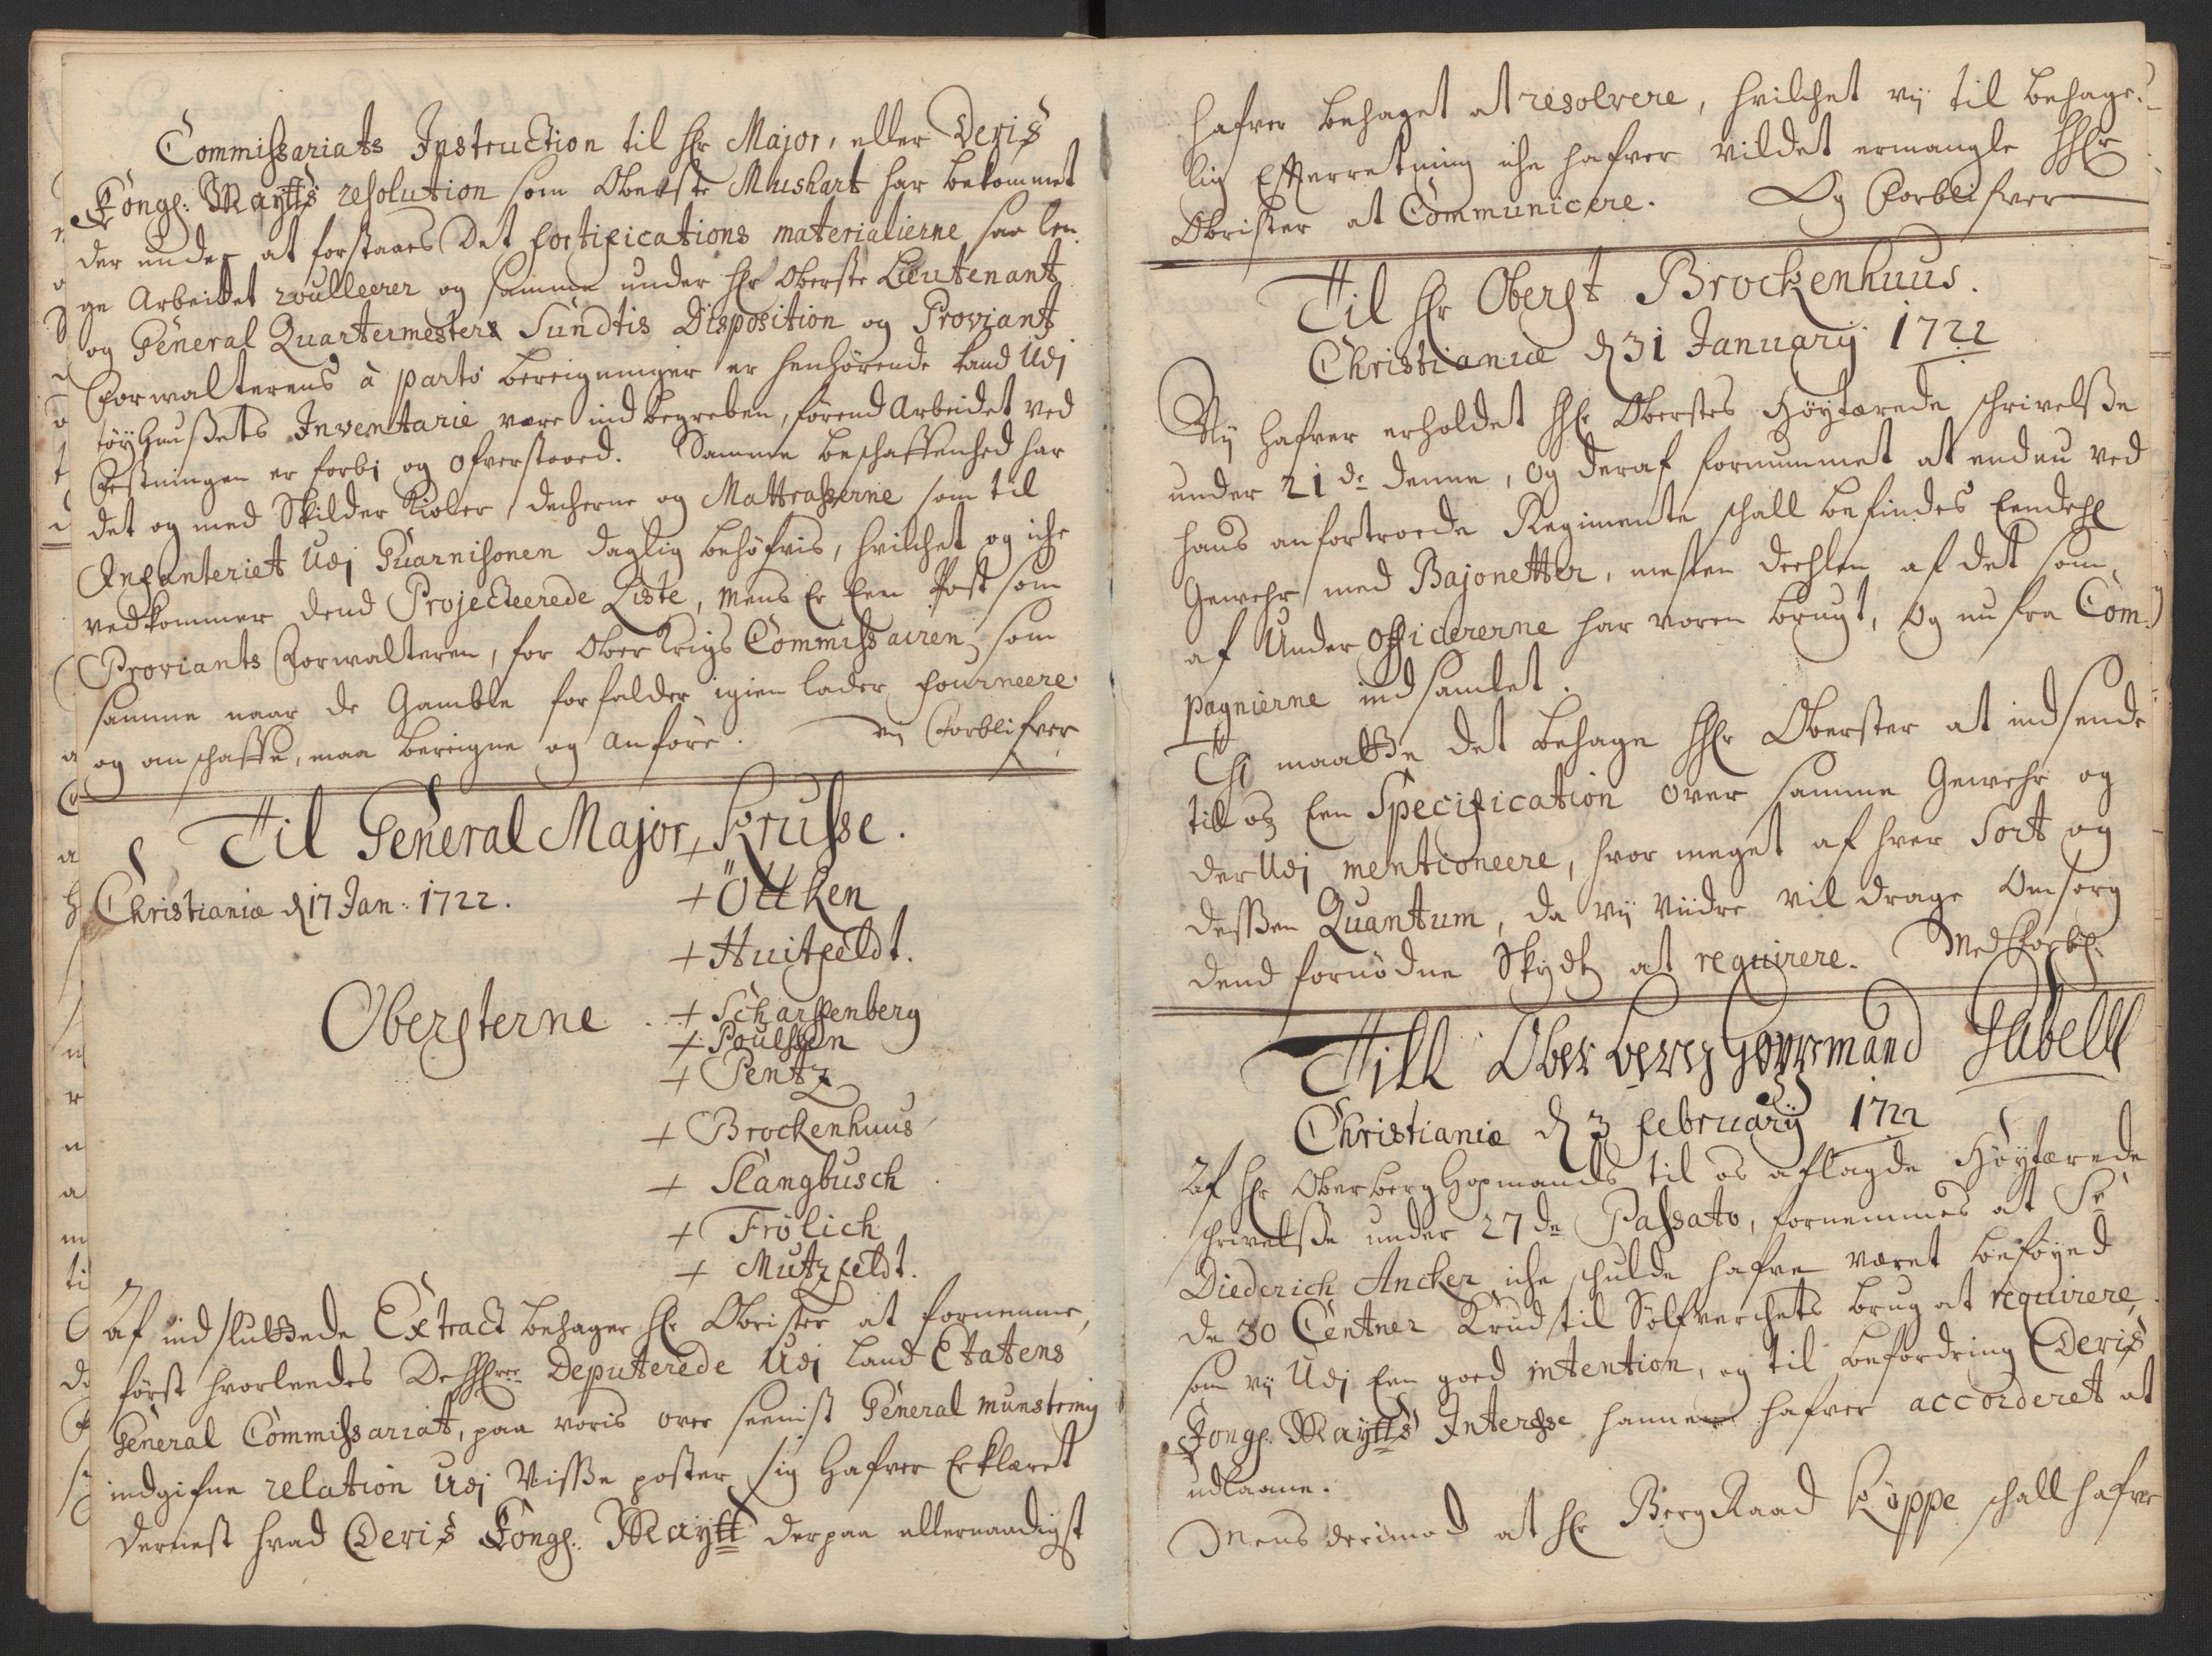 Commissariats Instruction til Hr Major, eller Deris
Kongl: Maytts resolution som Oberste Mushart har bekommet
der under at forstaaes Det fortifications materialierne saa len-
ge Arbeidet roulleerer og samme under Hr Oberste Lieutenant
og General Quartermesters Sundtis Disposition og Proviant
Forwalterens à parto bereigninger er henhørende kand Udj
tøyhuusets Inventarie være indbegreben, førend Arbeidet ved
Festningen er forbj og ofverstaaed. Samme beschaffenhed har
det og med Skilder Kioler Decherne og Mattrasserne som til
Infanteriet Udj Guarnisonen daglig behøfvis, hvilchet og iche
vedkommer dend Projecteerede Liste, mens Er Een Post som
Proviants Forwalteren, for Ober Krigs Commissairen, som
samme naar de Gamble forfalder igien lader fourneere
og anschaffe, maa bereigne og anføre. vij Forblifver
Til General Major Krusse.
Christianiæ d 17 Jan: 1722.
+ Ötken
+ Huitfeldt.
Obersterne
+ Scharffenberg
+ Poulssen
+ Pentz
+ Brockenhuus
+ Stangbusch
+ Frölich
+ Mutzfeldt.
Af indsluttede Extract behager Hr Obrister at fornemme,
først hvorleedes De Hrre Deputerede Udj Land Etatens
General Commissariat, paa voris over seeniste General munstring
indgifne relation Udj Visse poster sig Hafver Erklæret
dernest hvad Deris Kongl: Maytt derpaa allernaadigst
hafver behaget at resolvere, hvilchet vij til behage-
lig Efterretning iche hafver vildet ermangle HHr
Obrister at Communicere. Og Forblifver
Til Hr Oberst Brockenhuus.
Christianiæ d 31 January 1722
Vij hafver erholdet HHr Oberstes Høytærede schrivelsse
under 21 de denne, og deraf fornummet at endnu ved
hans anfortroede Regimente schall befindes Eendehl
Gewehr med Bajonetter, mesten deehlen af det som
af Under Officererne har voren brugt, og nu fra Com-
pagnierne indsamlet.
Thj maatte det behage HHr Oberster at indsende
till os Een Specification over samme Gewehr og
der Udj mentioneere, hvor meget af hver Sort og
dessen Quantum, da vij viidre vil drage Omsorg
dend fornødne Skyds at requirere. Med Forbl.
Till Ober berg Hopmand Tabell
Christiania d 3 february 1722
Af Hr Oberberg Hopmands til os aflagde Høytærede
schrivelsse under 27 de Passato, fornemmes at Sr
Diederich Ancker iche schulde hafve været beføyed
de 30 Centner Krud til Sølfverchets brug at requirere,
som vij Udj Een goed intention, og til befordring Deris
Kongl. Maytts Interesse hannem hafver accorderet at
udlaane.
Mens derimod at Hr Berg Raad Köppe schall hafve